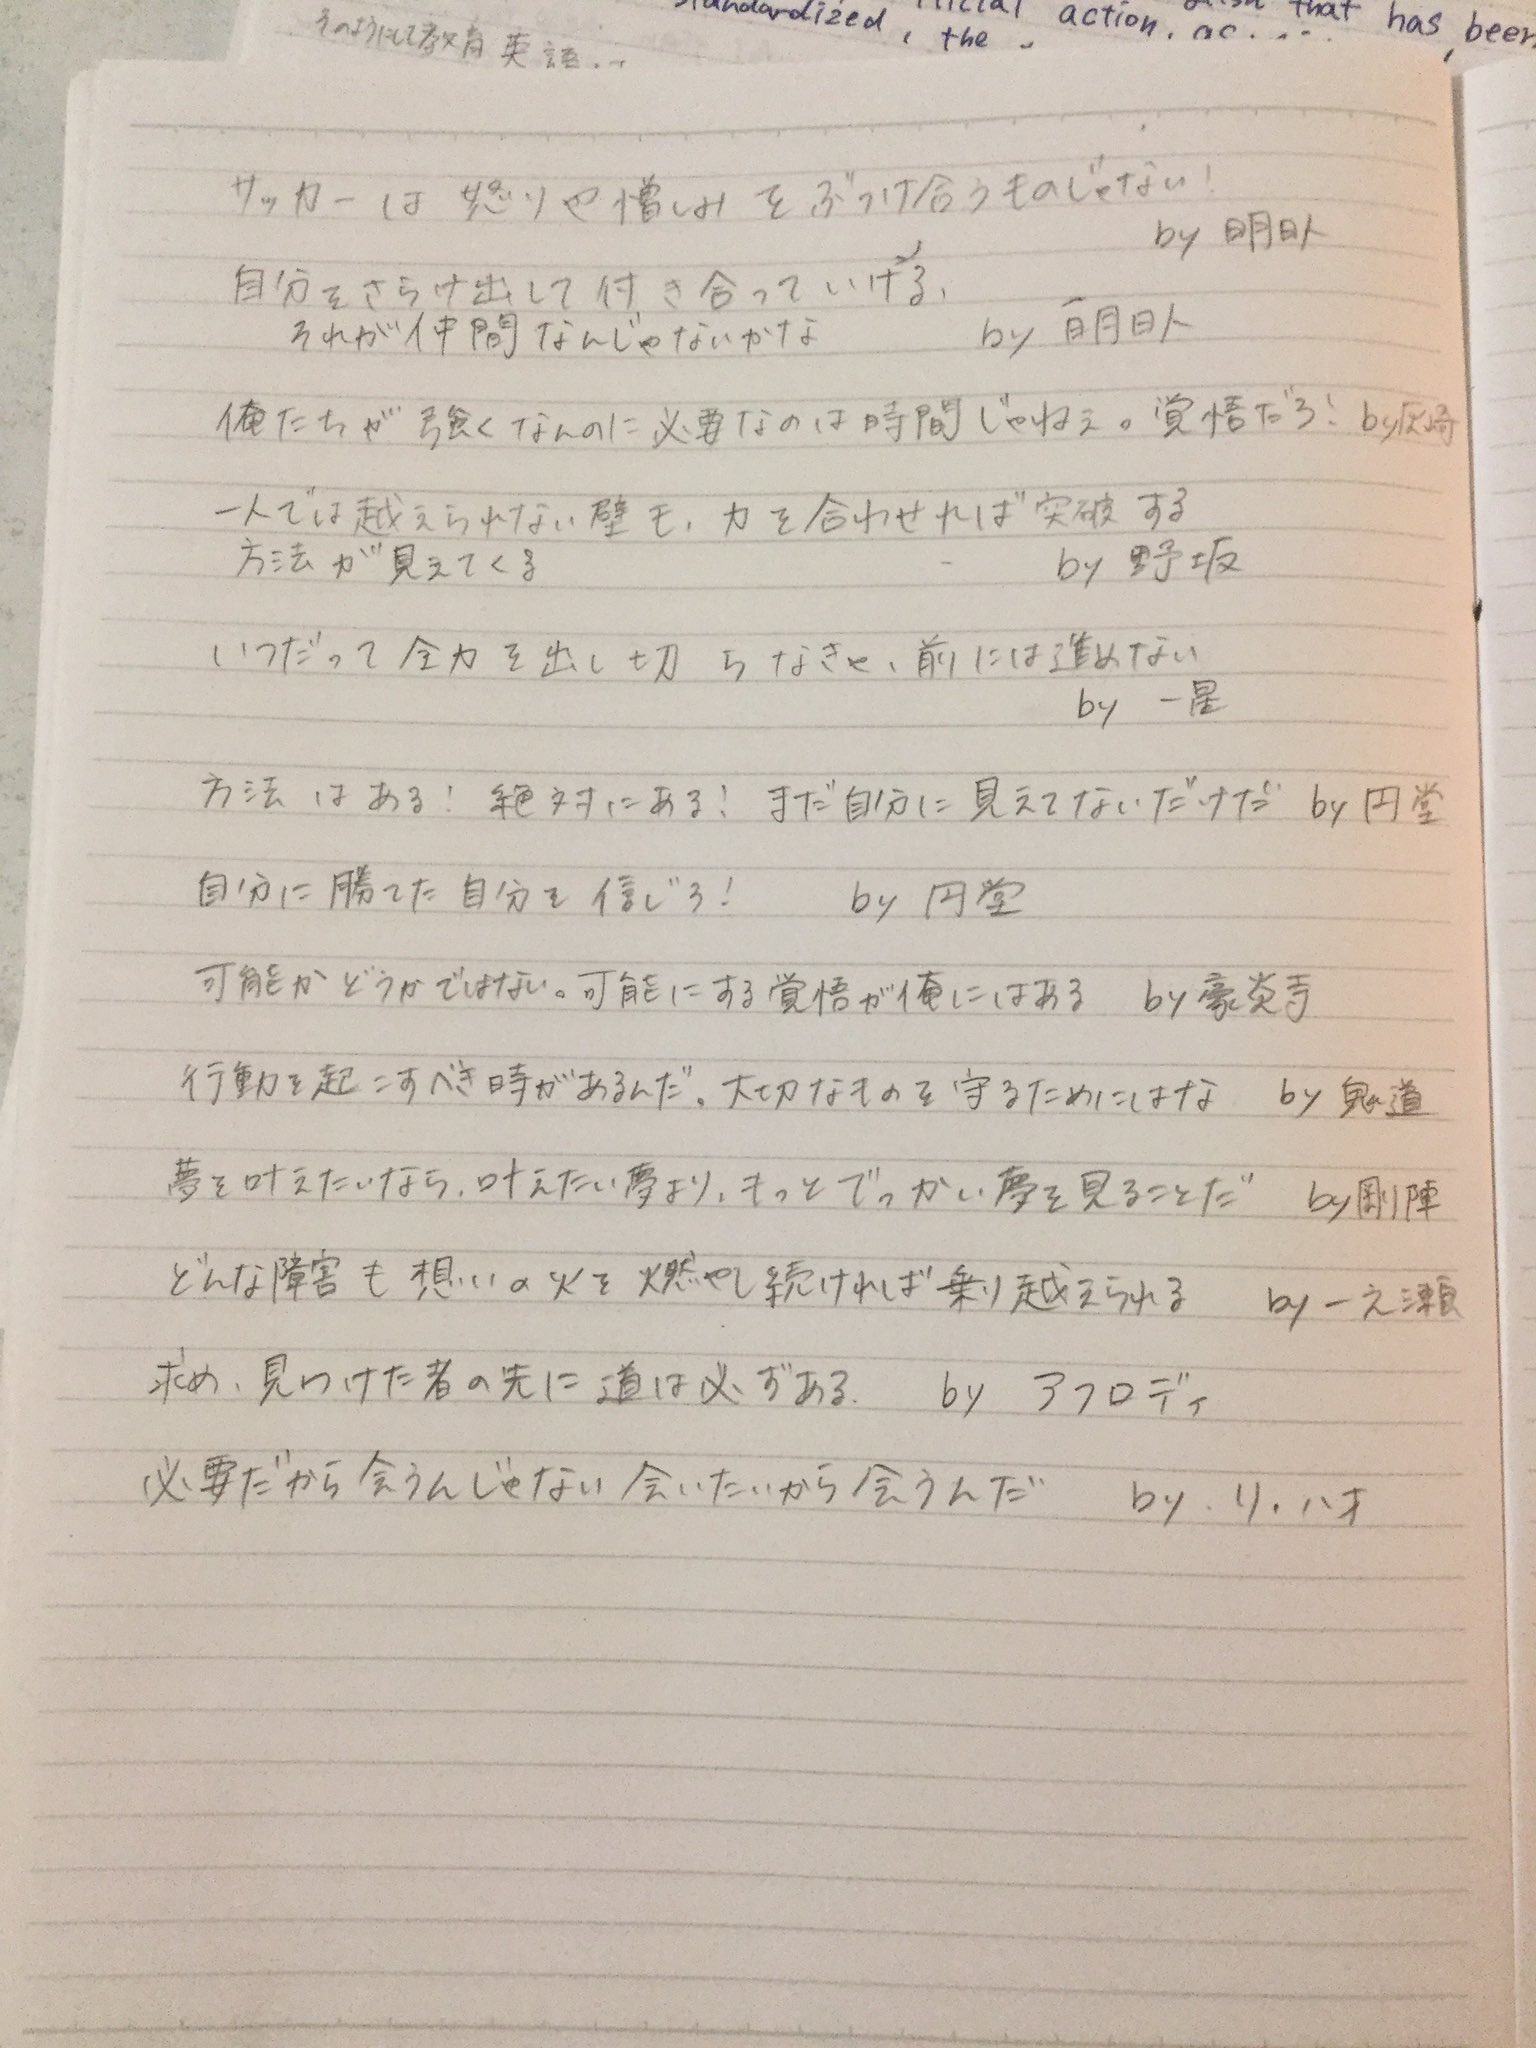 そのようにして教育英語...
standardized, the action, that has been
サッカーは怒りや憎しみをぶつけ合うものじゃない!
by 明日人
自分をさらけ出して付き合っていける、
それが仲間なんじゃないかな by 明日人
俺たちが強くなんのに必要なのは時間じゃねぇ。覚悟だろ! by灰崎
一人では越えられない壁も、力を合わせれば突破する
方法が見えてくる by 野坂
いつだって全力を出し切らなきゃ、前には進めない
by 一星
方法はある! 絶対にある! まだ自分に見えてないだけだ by 円堂
自分に勝てた自分を信じろ! by 円堂
可能かどうかではない。可能にする覚悟が俺にはある by 豪炎寺
行動を起こすべき時があるんだ。大切なものを守るためにはな by 鬼道
夢を叶えたいなら、叶えたい夢より、もっとでっかい夢を見ることだ by剛陣
どんな障害も想いの火を燃やし続ければ乗り越えられる by 一之瀬
求め、見つけた者の先に道は必ずある. by アフロディ
必要だから会うんじゃない 会いたいから会うんだ by.リ・ハオ